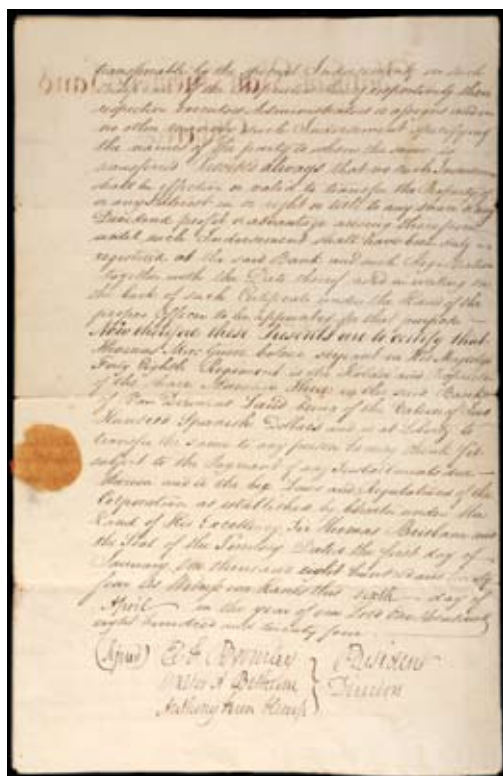 transferable by the special Indorsements on such
of the Proprietors thereof respectively their
respective Executors Administrators or assigns and in
no other manner such Indorsement specifying
the names of the party to whom the same is
transferred Provided always that no such Indorsement
shall be effective or valid to transfer the Property of
or any Interest in or right or title to any Share or any
Dividend profit or advantage arising therefrom
until such Indorsement shall have been duly
registered at the said Bank and such Registration
together with the Date thereof and in writing on
the back of such Certificate under the Hand of the
proper Officer to be appointed for that purpose
Now therefore these Presents are to certify that
Thomas colour serjeant in His Majestys
Forty Eighth Regiment is the Holder and Proprietor
of the Share Number in the said Bank
of Van Diemens Land being of the Value of Two
Hundred Spanish Dollars and is at Liberty to
transfer the same to any person he may think fit
subject to the Payment of any Instalments due
thereon and to the bye Laws and Regulations of the
Corporation as established by Charter under the
Hand of His Excellency Sir Thomas Brisbane and
the Seal of the Territory Dated the first day of
January One thousand eight hundred and twenty
four As Witness our hands this sixth day of
April in the year of our Lord One thousand
eight hundred and twenty four
(Signed) President
Walter A Bethune
Director
Anthony Fenn Kemp